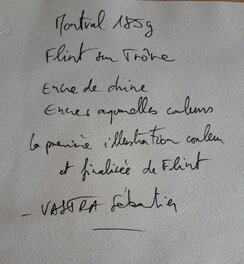 Montval 185g
Flint sur Trône
Encre de chine
Encres aquarelles couleurs
la première illustration couleur
et finalisée de Flint
- VASTRA Sébastien